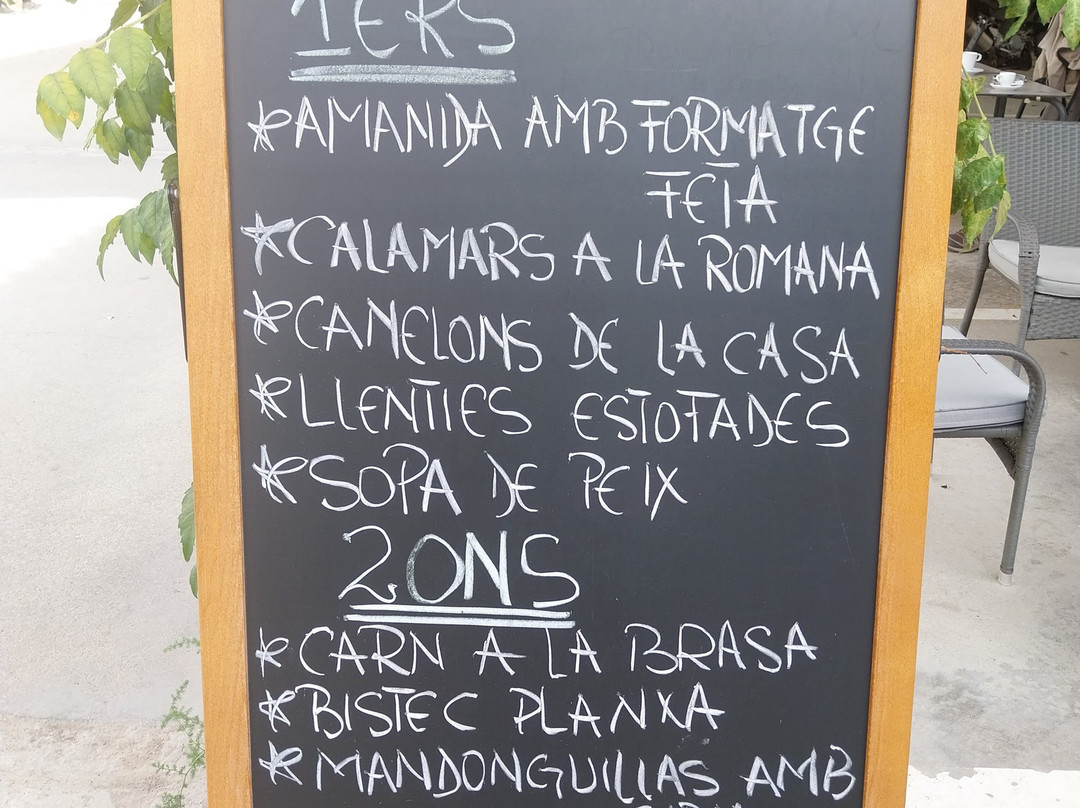 1ERS
*AMANIDA AMB FORMATGE
FETA
*CALAMARS A LA ROMANA
*CANELONS DE LA CASA
*LLENTIES ESTOFADES
*SOPA DE PEIX
2ONS
*CARN A LA BRASA
*BISTEC PLANXA
*MANDONGUILLAS AMB